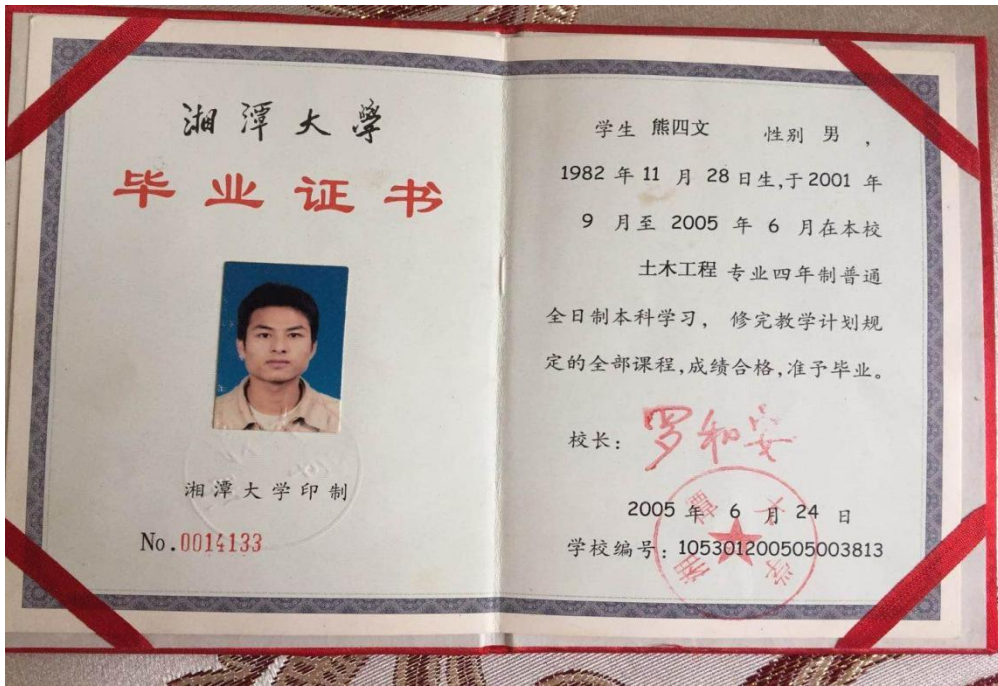 湘潭大學
毕业证书
湘潭大学印制
No.0014133
学生 熊四文 性别 男，
1982 年 11 月 28 日生,于 2001 年
9 月至 2005 年 6 月在本校
土木工程 专业四年制普通
全日制本科学习， 修完教学计划规
定的全部课程,成绩合格,准予毕业。
校长： 罗和安
2005 年 6 月 24 日
学校编号：105301200505003813
湘潭大学